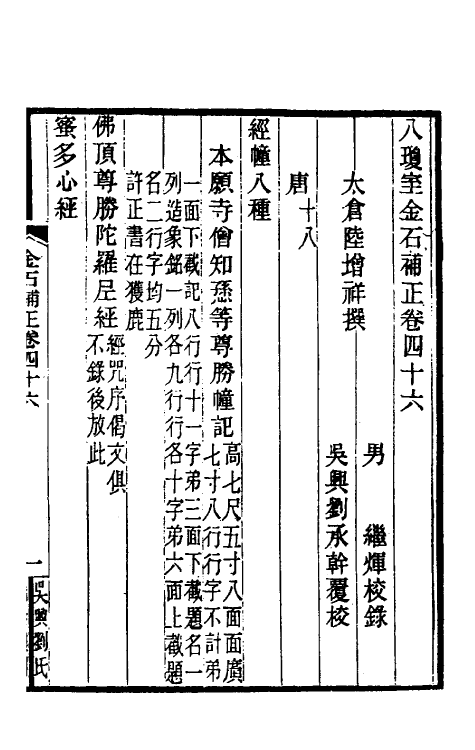 八瓊室金石補正卷四十六
太倉陸增祥撰
男　繼煇校錄
吳興劉承幹覆校
唐十八
經幢八種
本願寺僧知惥等尊勝幢記
高七尺五寸八面面廣
七寸八行行字不計弟
一面下截記八行行十一字弟三面下截題名一
列造象銘一列各九行行各十字弟六面上截題
名二行字均五分
許正書在獲鹿
佛頂尊勝陀羅尼經
經咒序偈文俱
不錄後放此
蜜多心經
金石補正卷四十六
一
吳興劉氏